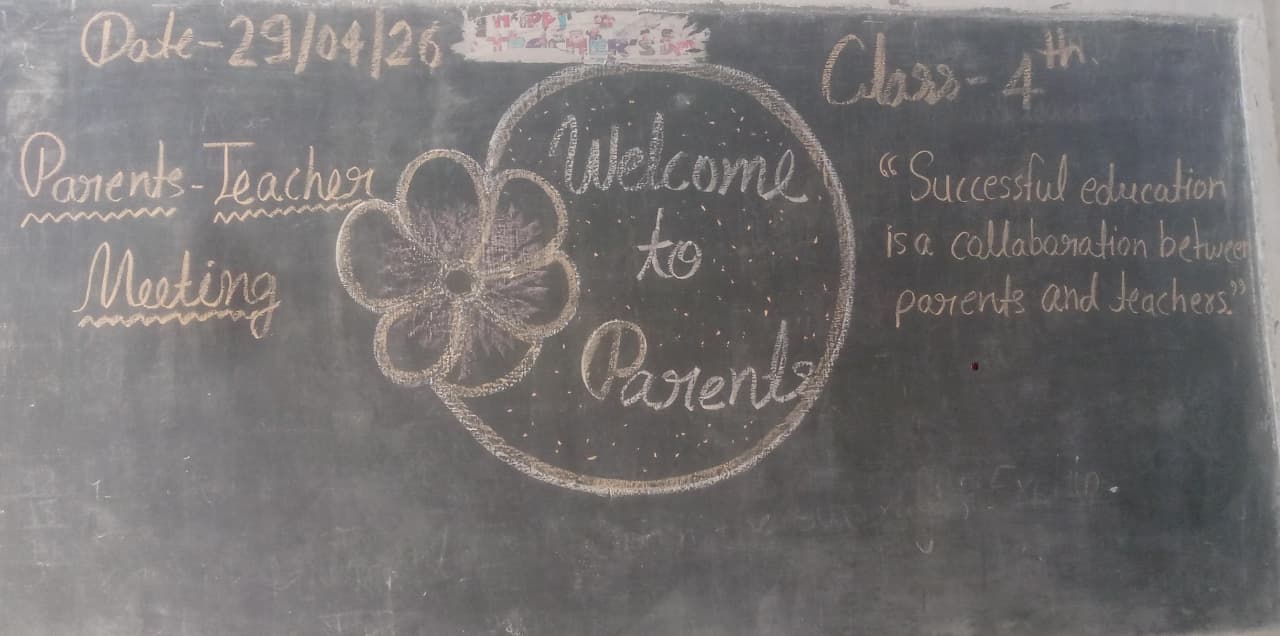 Date-29/04/26
HAPPY
TEACHER'S
Class-4th.
Parents-Teacher
Meeting
Welcome
to
Parents
“Successful education
is a collaboration between
parents and teachers.”